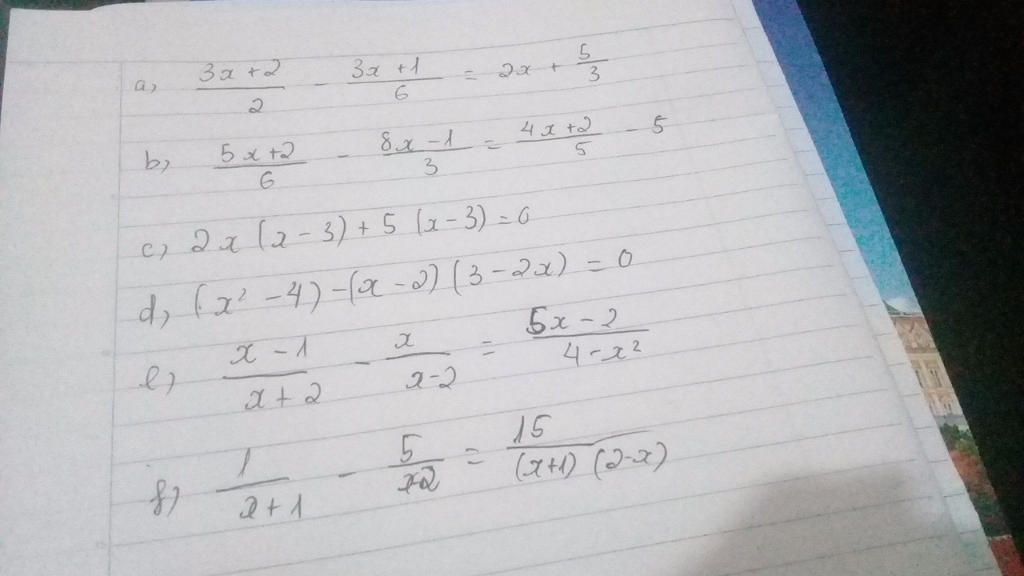 a, (3x+2)/2 - (3x+1)/6 = 2x + 5/3
b, (5x+2)/6 - (8x-1)/3 = (4x+2)/5 - 5
c, 2x(x-3)+5(x-3)=0
d, (x² -4)-(x-2)(3-2x) = 0
e, (x-1)/(x+2) - x/(x-2) = (5x-2)/(4-x²)
f, 1/(x+1) - 5/(x-2) = 15/((x+1)(2-x))